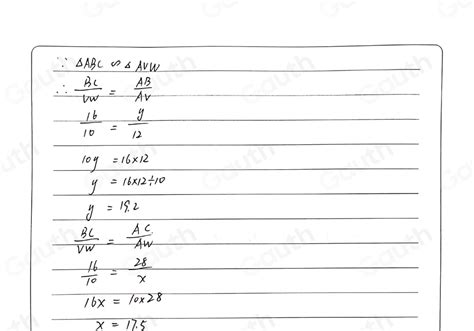 ∵ △ABC ∽ △AVW
∴ BC/VW = AB/AV
16/10 = y/12
10y = 16×12
y = 16×12÷10
y = 19.2
BC/VW = AC/AW
16/10 = 28/x
16x = 10×28
x = 17.5
Gauth